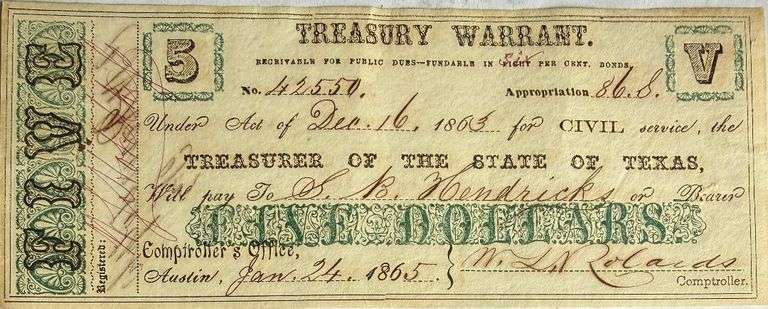 FIVE
Registered:
5
TREASURY WARRANT.
V
RECEIVABLE FOR PUBLIC DUES—FUNDABLE IN EIGHT PER CENT. BONDS.
No. 42550. Appropriation 86.8.
Under Act of Dec. 16, 1863 for CIVIL service, the
TREASURER OF THE STATE OF TEXAS,
Will pay To S. B. Hendricks or Bearer
FIVE DOLLARS.
Comptroller's Office,
Austin, Jan. 24 1865.
Comptroller.